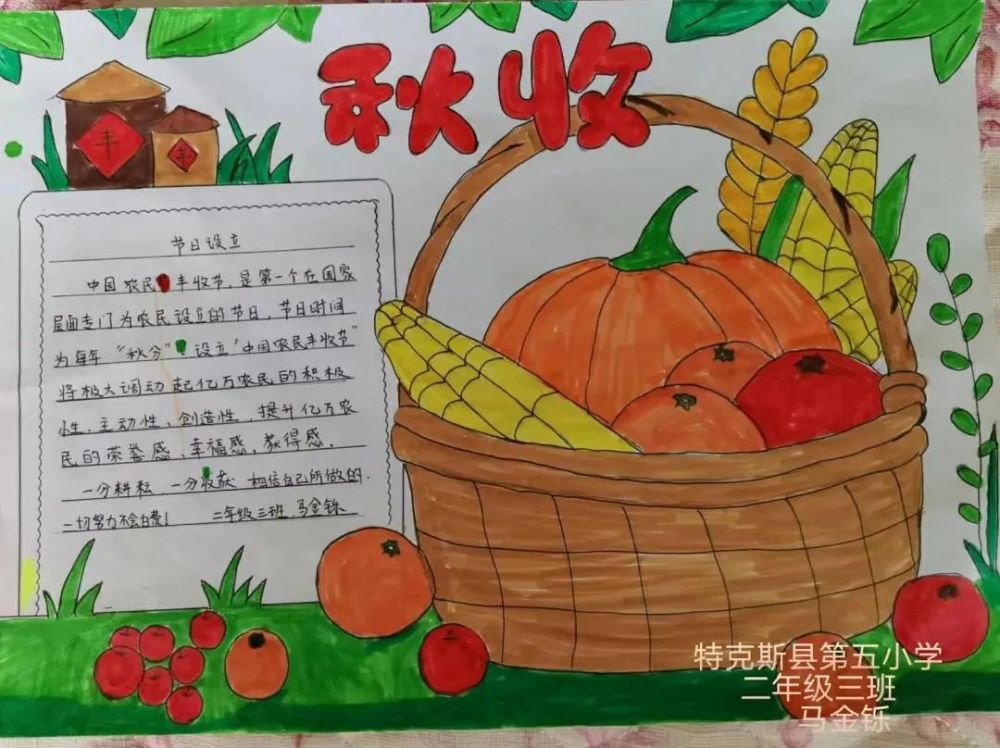 秋收
丰
丰
节日设立
中国农民丰收节,是第一个在国家
层面专门为农民设立的节日,节日时间
为每年“秋分”。设立“中国农民丰收节”
将极大调动起亿万农民的积极
性、主动性、创造性,提升亿万农
民的荣誉感、幸福感、获得感。
一分耕耘,一分收获 相信自己所做的
一切努力不会白费! 二年级三班 马金铄
特克斯县第五小学
二年级三班
马金铄